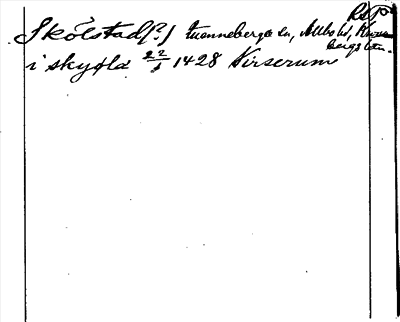 RAP
Skölstad(?) Tuenneberga sn, Allbo hd, Kronobergs län.
i skyqla 22/1 1428 Virserum